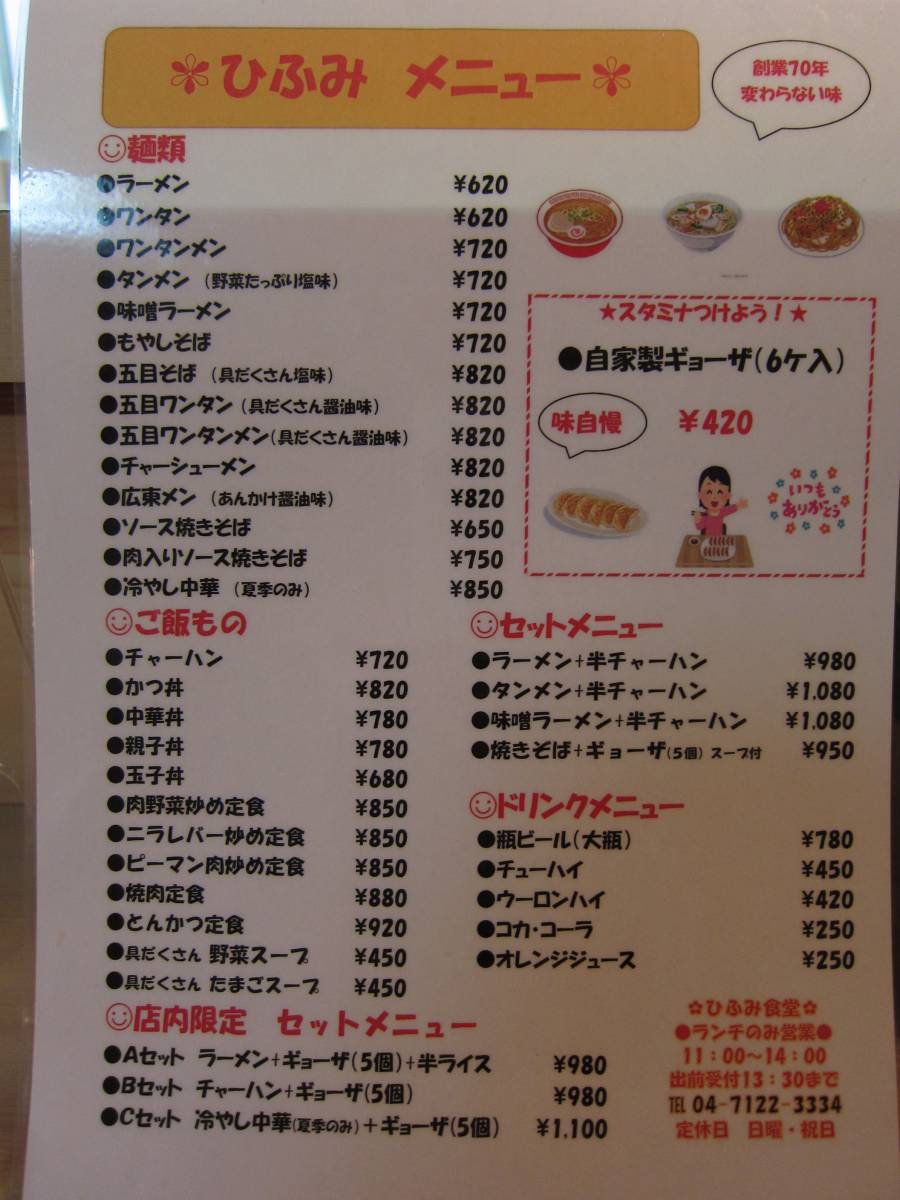 ＊ひふみ メニュー＊
創業70年
変わらない味
☺麺類
●ラーメン ¥620
●ワンタン ¥620
●ワンタンメン ¥720
●タンメン (野菜たっぷり塩味) ¥720
●味噌ラーメン ¥720
●もやしそば ¥720
●五目そば (具だくさん塩味) ¥820
●五目ワンタン(具だくさん醤油味) ¥820
●五目ワンタンメン(具だくさん醤油味) ¥820
●チャーシューメン ¥820
●広東メン (あんかけ醤油味) ¥820
●ソース焼きそば ¥650
●肉入りソース焼きそば ¥750
●冷やし中華 (夏季のみ) ¥850
★スタミナつけよう！★
●自家製ギョーザ(6ケ入)
味自慢 ¥420
いつも
ありがとう
☺ご飯もの
●チャーハン ¥720
●かつ丼 ¥820
●中華丼 ¥780
●親子丼 ¥780
●玉子丼 ¥680
●肉野菜炒め定食 ¥850
●ニラレバー炒め定食 ¥850
●ピーマン肉炒め定食 ¥850
●焼肉定食 ¥880
●とんかつ定食 ¥920
●具だくさん 野菜スープ ¥450
●具だくさん たまごスープ ¥450
☺セットメニュー
●ラーメン+半チャーハン ¥980
●タンメン+半チャーハン ¥1.080
●味噌ラーメン+半チャーハン ¥1.080
●焼きそば+ギョーザ(5個) スープ付 ¥950
☺ドリンクメニュー
●瓶ビール(大瓶) ¥780
●チューハイ ¥450
●ウーロンハイ ¥420
●コカ・コーラ ¥250
●オレンジジュース ¥250
☺店内限定 セットメニュー
●Aセット ラーメン+ギョーザ(5個)+半ライス ¥980
●Bセット チャーハン+ギョーザ(5個) ¥980
●Cセット 冷やし中華(夏季のみ)+ギョーザ(5個) ¥1.100
✿ひふみ食堂✿
●ランチのみ営業●
11：00〜14：00
出前受付13：30まで
TEL 04-7122-3334
定休日 日曜・祝日